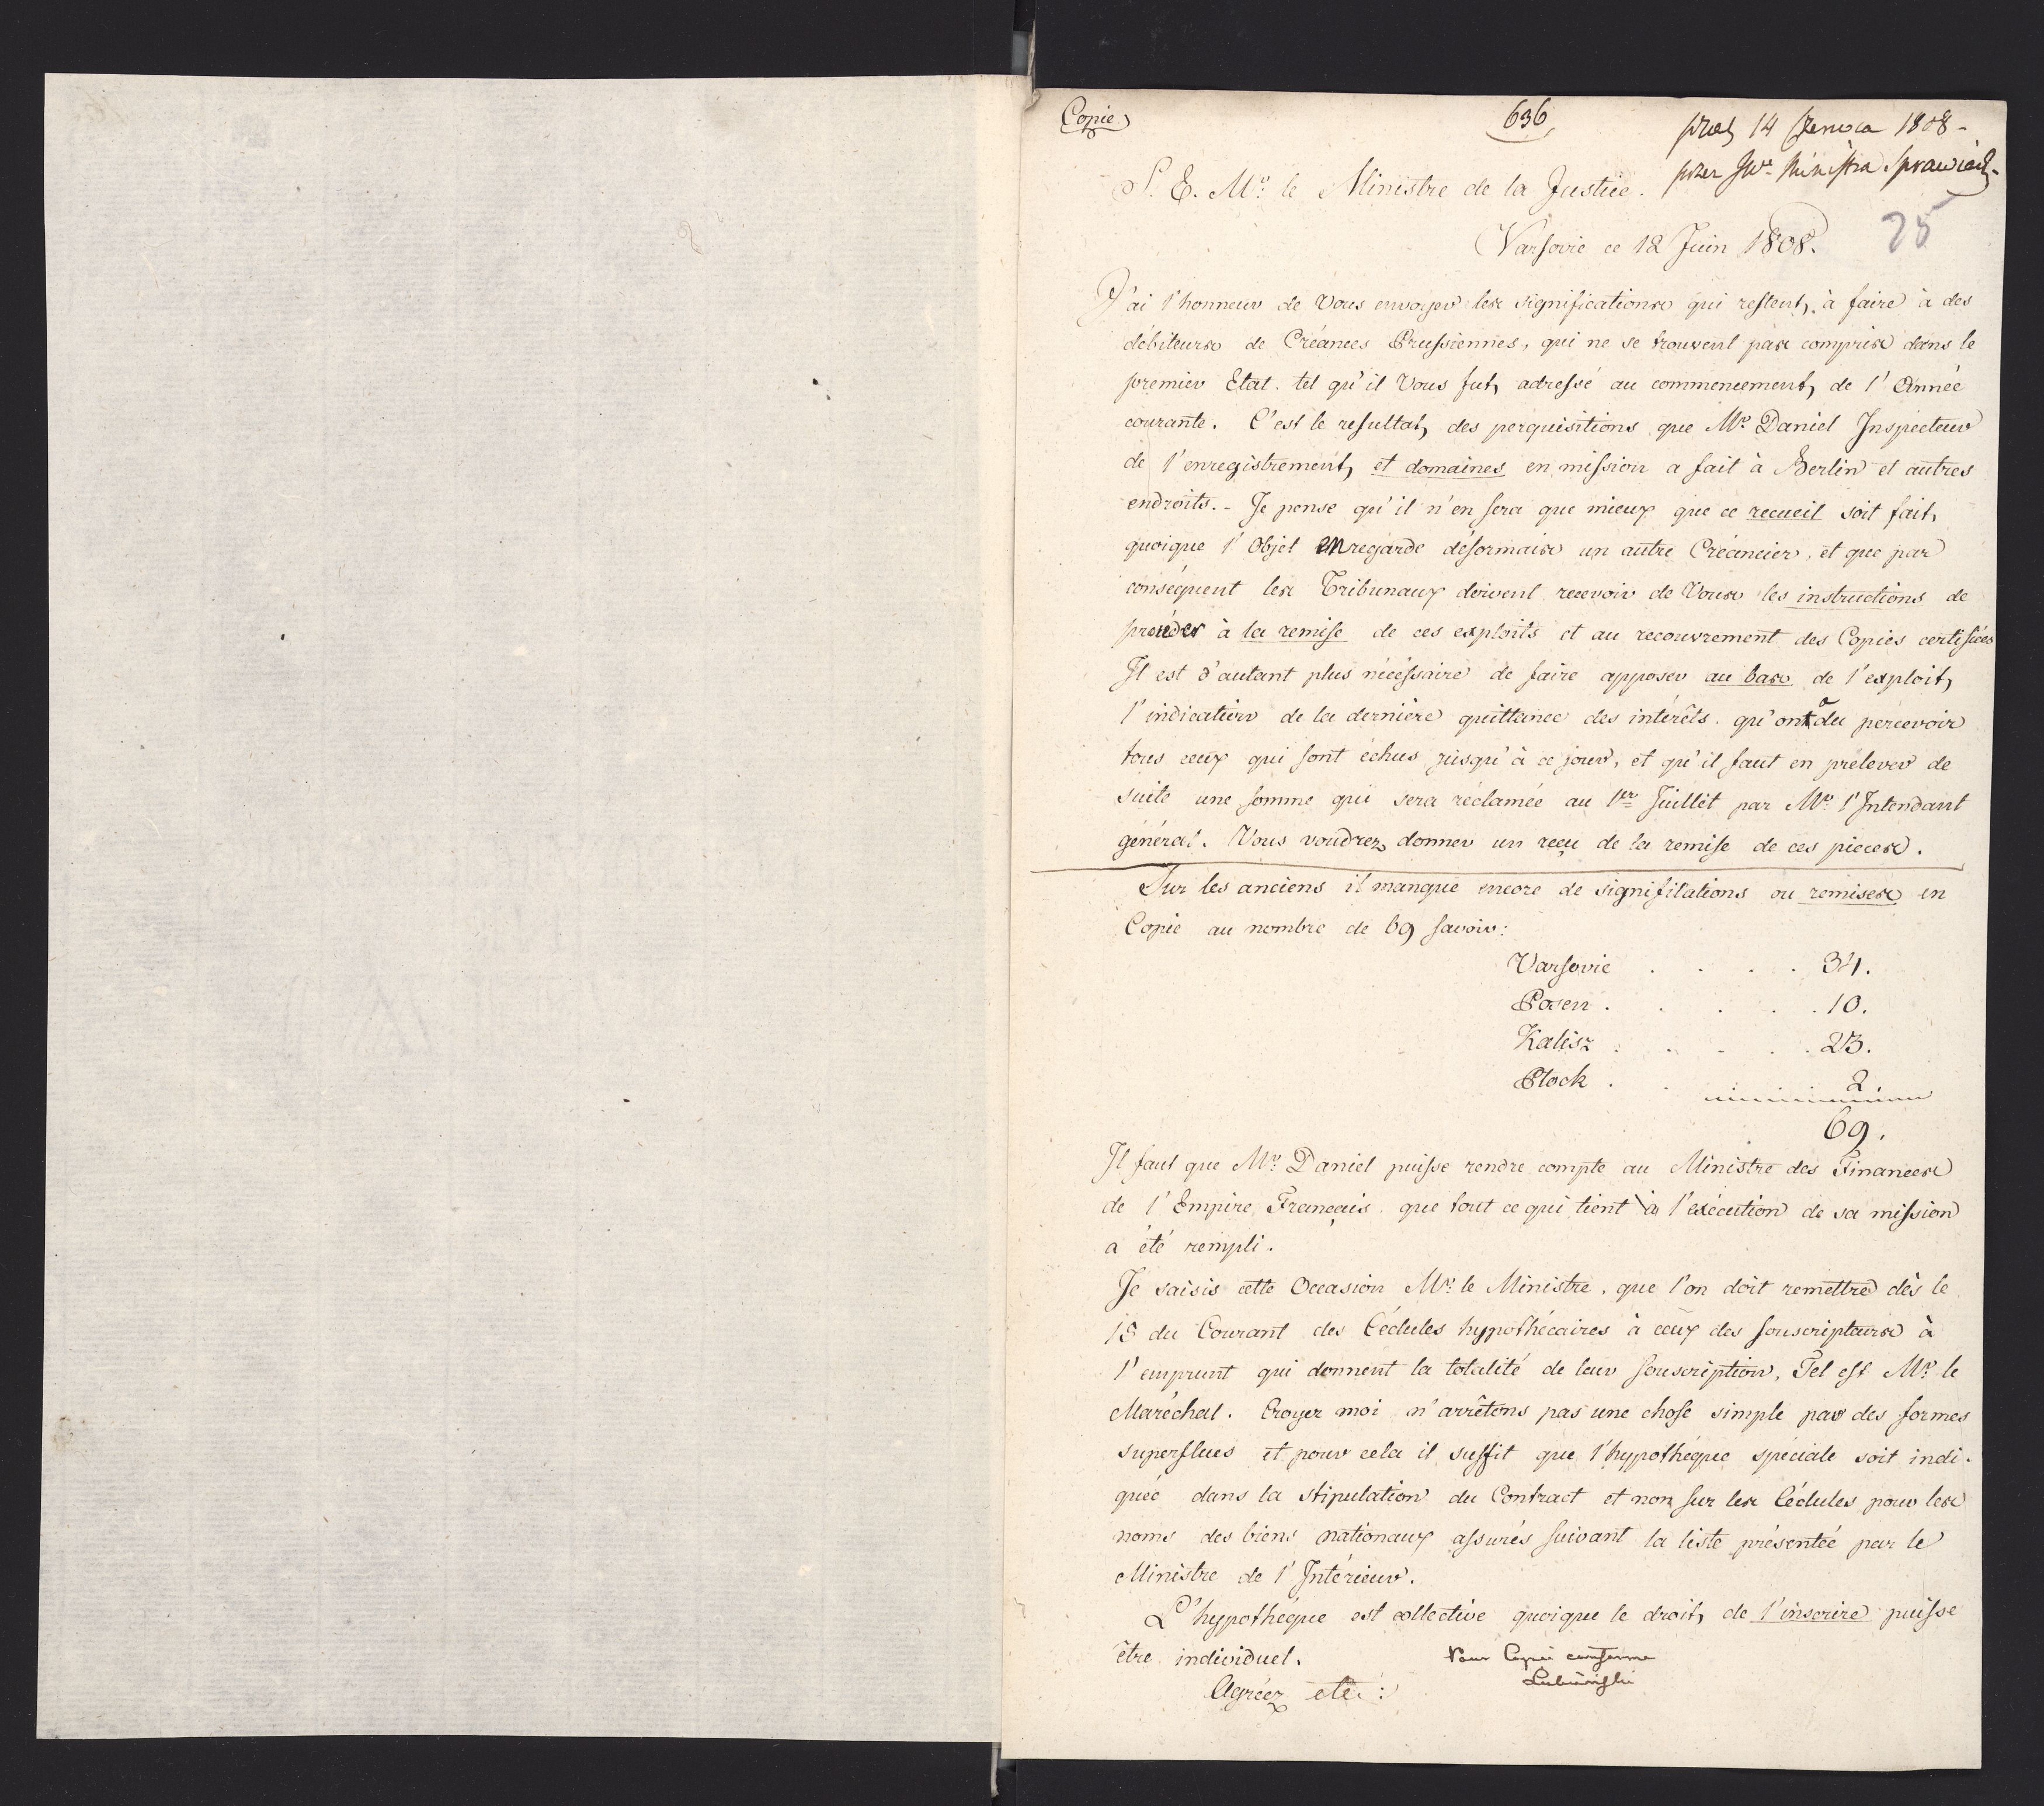 Copie
636
præs 14 Czerwca 1808 -
przez JW. Ministra Sprawiedl.
S. E. Mr. le Ministre de la Justice.
Varsovie ce 12 Juin 1808.
25
J'ai l'honneur de Vous envoyer les significations qui restent, à faire à des
débiteurs de Créances Prussiennes, qui ne se trouvent pas compris dans le
premier Etat. tel qu'il Vous fut, adressé au commencement, de l'Année
courante. C'est le resultat, des perquisitions que Mr. Daniel Inspecteur
de l'enregistrement, et domaines en mission a fait à Berlin et autres
endroits. - Je pense qu'il n'en sera que mieux que ce recueil soit fait,
quoique l'Objet en regarde désormais un autre Créancier, et que par
conséquent les Tribunaux doivent recevoir de Vous les instructions de
procéder à la remise de ces exploits et au recouvrement des Copies certifiées
Il est d'autant plus nécéssaire de faire apposer au bas de l'exploit,
l'indication de la dernière quittance des intérêts. qu'on a du percevoir
tous ceux qui sont échus jusqu'à ce jour, et qu'il faut en prélever de
suite une somme qui sera réclamée au 1er Juillet par Mr. l'Intendant
général. Vous voudrez donner un reçu de la remise de ces pieces.
Sur les anciens il manque encore de significations ou remises en
Copie au nombre de 69 savoir:
Varsovie . . . . 34.
Posen . . . . 10.
Kalisz . . . . 23.
Plock . . 2.
69.
Il faut que Mr. Daniel puisse rendre compte au Ministre des Finances
de l'Empire Français. que tout ce qui tient à l'exécution de sa mission
a été rempli.
Je saisis cette Occasion Mr. le Ministre, que l'on doit remettre dès le
15 du Courant des Cédules hypothécaires à ceux des souscripteurs à
l'emprunt qui donnent la totalité de leur souscription, Tel est Mr. le
Maréchal. Croyez moi n'arrêtons pas une chose simple par des formes
superflues et pour cela il suffit que l'hypothéque spéciale soit indi-
quée dans la stipulation du Contract et non sur les Cédules pour les
noms des biens nationaux assurés suivant la liste présentée par le
Ministre de l'Intérieur.
L'hypothéque est collective quoique le droit, de l'inscrire puisse
être individuel.
Pour Copie conforme
Agréez etc. :